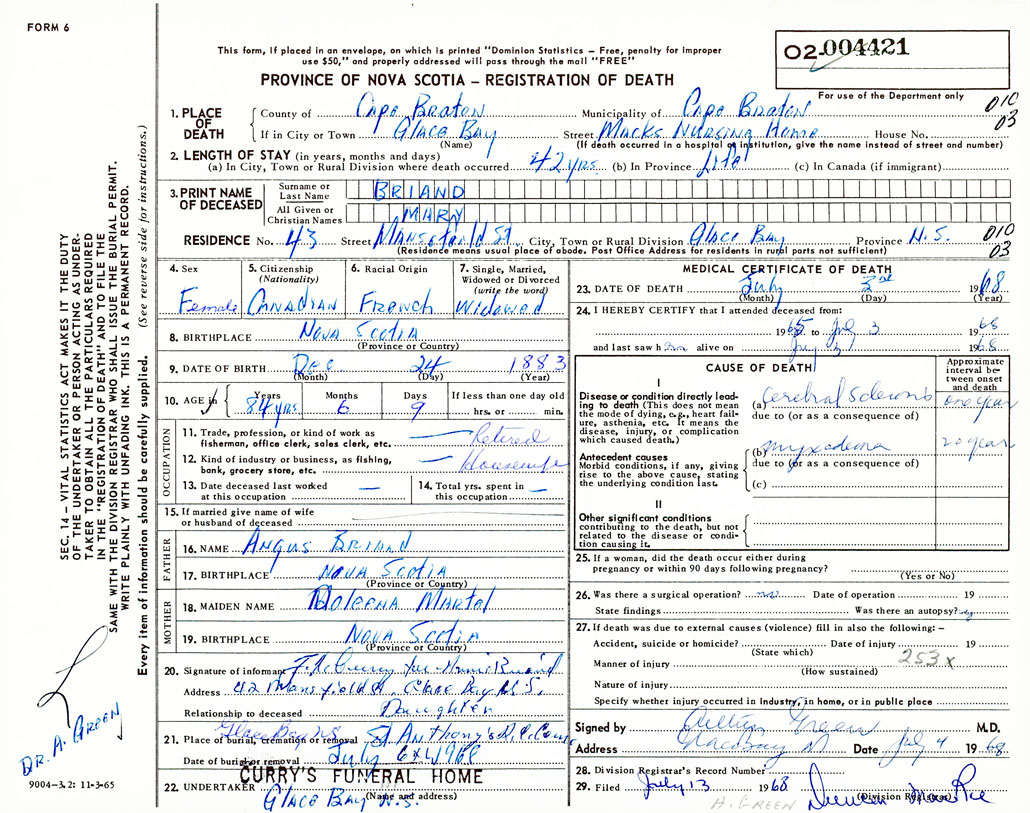 FORM 6
This form, if placed in an envelope, on which is printed "Dominion Statistics – Free, penalty for improper
use $50," and properly addressed will pass through the mail "FREE"
PROVINCE OF NOVA SCOTIA – REGISTRATION OF DEATH
02-004421
For use of the Department only
010
03
1. PLACE OF DEATH
County of Cape Breton Municipality of Cape Breton
If in City or Town Glace Bay Street Macks Nursing Home House No.
(Name) (If death occurred in a hospital or institution, give the name instead of street and number)
2. LENGTH OF STAY (in years, months and days)
(a) In City, Town or Rural Division where death occurred 42 yrs. (b) In Province Life (c) In Canada (if immigrant)
3. PRINT NAME OF DECEASED
Surname or Last Name BRIAND
All Given or Christian Names MARY
RESIDENCE No. 43 Street Mansefield St City, Town or Rural Division Glace Bay Province N.S.
010
03
(Residence means usual place of abode. Post Office Address for residents in rural parts not sufficient)
4. Sex Female
5. Citizenship (Nationality) Canadian
6. Racial Origin French
7. Single, Married, Widowed or Divorced (write the word) Widowed
8. BIRTHPLACE Nova Scotia
(Province or Country)
9. DATE OF BIRTH Dec 24 1883
(Month) (Day) (Year)
10. AGE in Years 84 yrs Months 6 Days 9 If less than one day old
hrs. or min.
OCCUPATION
11. Trade, profession, or kind of work as
fisherman, office clerk, sales clerk, etc. Retired
12. Kind of industry or business, as fishing,
bank, grocery store, etc. Housewife
13. Date deceased last worked
at this occupation —
14. Total yrs. spent in
this occupation —
15. If married give name of wife
or husband of deceased
FATHER
16. NAME Angus Briand
17. BIRTHPLACE Nova Scotia
(Province or Country)
MOTHER
18. MAIDEN NAME Martel
19. BIRTHPLACE Nova Scotia
(Province or Country)
20. Signature of informant
Address 42 Mansfield St. Glace Bay N.S.
Relationship to deceased Daughter
21. Place of burial, cremation or removal Glace Bay NS St Anthony's
Date of burial or removal July 6
22. UNDERTAKER CURRY'S FUNERAL HOME
Glace Bay N.S.
(Name and address)
MEDICAL CERTIFICATE OF DEATH
23. DATE OF DEATH July 3rd 1968
(Month) (Day) (Year)
24. I HEREBY CERTIFY that I attended deceased from:
1965 to July 3 1968
and last saw her alive on July 3 1968
CAUSE OF DEATH
Approximate interval between onset and death
I
Disease or condition directly lead-
ing to death (This does not
mean the mode of dying, e.g., heart fail-
ure, asthenia, etc. It means the
disease, injury, or complication
which caused death.)
(a) Cerebral Sclerosis one year
due to (or as a consequence of)
Antecedent causes
Morbid conditions, if any, giving
rise to the above cause, stating
the underlying condition last.
(b) myxoedema 20 year
due to (or as a consequence of)
(c)
II
Other significant conditions
contributing to the death, but not
related to the disease or condi-
tion causing it.
25. If a woman, did the death occur either during
pregnancy or within 90 days following pregnancy?
(Yes or No)
26. Was there a surgical operation? no Date of operation 19
State findings Was there an autopsy?
27. If death was due to external causes (violence) fill in also the following:–
Accident, suicide or homicide? Date of injury 19
(State which)
253x
Manner of injury
(How sustained)
Nature of injury
Specify whether injury occurred in industry, in home, or in public place
Signed by Arthur Green M.D.
Address Glace Bay Date July 4 1968
28. Division Registrar's Record Number
29. Filed July 13 1968
(Division Registrar)
A. GREEN
SEC. 14 – VITAL STATISTICS ACT MAKES IT THE DUTY
OF THE UNDERTAKER OR PERSON ACTING AS UNDER-
TAKER TO OBTAIN ALL THE PARTICULARS REQUIRED
IN THE "REGISTRATION OF DEATH" AND TO FILE THE
SAME WITH THE DIVISION REGISTRAR WHO SHALL ISSUE THE BURIAL PERMIT.
WRITE PLAINLY WITH UNFADING INK. THIS IS A PERMANENT RECORD.
Every item of information should be carefully supplied. (See reverse side for instructions.)
DR. A. GREEN
9004–3.2: 11-3-65